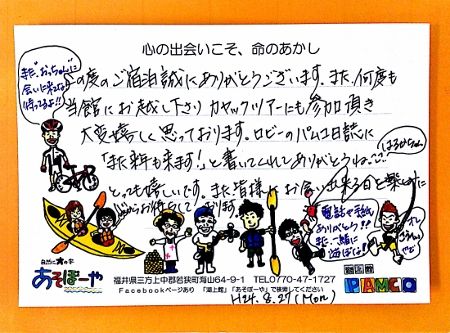 心の出会いこそ、命のあかし
この度のご宿泊誠にありがとうございます。また、何度も
当館にお越し下さりカヤックツアーにも参加頂き
大変嬉しく思っております。ロビーのパムコ日誌に
「また来年も来ます!」と書いてくれてありがとうね。
とっても嬉しいです。また皆様にお会い出来る日を楽しみに
心からお待ちしております。
また"おっちゃん"に
会いに来てな
待ってるよ!!
はるかちゃん
電話や手紙
ありがとう!!
また一緒に
遊ぼな!
自然に育つ子
あそぼーや
福井県三方上中郡若狭町海山64-9-1 TEL0770-47-1727
Facebookページあり 「湖上館」「あそぼーや」で検索してください
湖上館
PAMCO
H24.8.27(Mon)